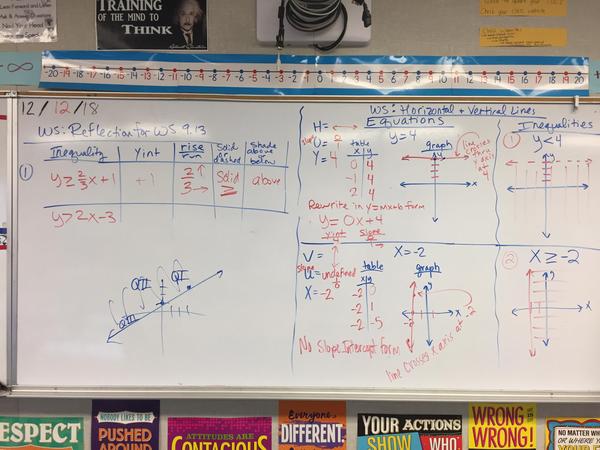 TRAINING
OF THE MIND TO
THINK
-20 -19 -18 -17 -16 -15 -14 -13 -12 -11 -10 -9 -8 -7 -6 -5 -4 -3 -2 -1 0 1 2 3 4 5 6 7 8 9 10 11 12 13 14 15 16 17 18 19 20
-∞
12/12/18
WS: Reflection for WS 9.13
Inequality
Yint
rise/run
Solid or dashed
Shade above below
① y ≥ 2/3x + 1
+1
2↑
3→
Solid
≥
above
y > 2x - 3
QII
QI
QIII
WS: Horizontal + Vertical Lines
Equations
H = ↔
slope
O = 0
Y = 4
y = 4
table
x | y
4
4
4
graph
line crosses thru y axis at 4
Rewrite in y=mx+b form
y = 0x + 4
yint
4
slope
V =
slope
U = undefined
X = -2
X = -2
table
x | y
-2
-2 | 1
-2 | -5
graph
No Slope Intercept form
line crosses x axis at -2
Inequalities
① y < 4
② X ≥ -2
ESPECT
NOBODY LIKES TO BE
PUSHED
AROUND
ATTITUDES ARE
CONTAGIOUS
Everyone
DIFFERENT.
YOUR ACTIONS
SHOW WHO
WRONG IS
WRONG!
NO MATTER
OR WHERE